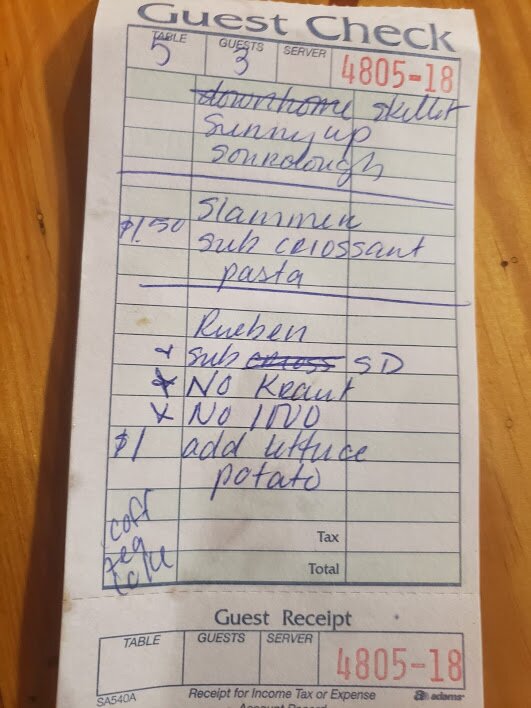 Guest Check
TABLE GUESTS SERVER
5 3 4805-18
downhome skillet
Sunny up
Sourdough
Slammer
$1.50 sub croissant
pasta
Rueben
x sub cross SD
x NO Kraut
x NO 1000
$1 add lettuce
potato
coff
Tax
Total
Guest Receipt
TABLE GUESTS SERVER
4805-18
SA540A Receipt for Income Tax or Expense adams
Account Record